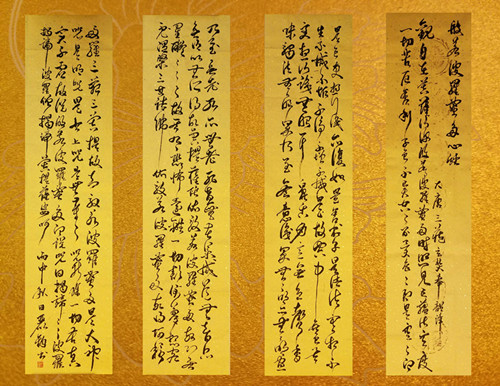 般若波羅蜜多心經
大唐三藏玄奘奉詔譯
觀自在菩薩行深般若波羅蜜多時照見五蘊皆空度
一切苦厄舍利子色不異空空不異色色即是空空即
是色受想行識亦復如是舍利子是諸法空相不
生不滅不垢不淨不增不減是故空中無色無
受想行識無眼耳鼻舌身意無色聲香
味觸法無眼界乃至無意識界無無明亦無無明盡
乃至無老死亦無老死盡無苦集滅道無智亦
無得以無所得故菩提薩埵依般若波羅蜜多故心無
罣礙無罣礙故無有恐怖遠離一切顛倒夢想究
竟涅槃三世諸佛依般若波羅蜜多故得阿耨
多羅三藐三菩提故知般若波羅蜜多是大神
咒是大明咒是無上咒是無等等咒能除一切苦真
實不虛故說般若波羅蜜多咒即說咒曰揭諦揭諦波羅
揭諦波羅僧揭諦菩提薩婆訶 丙申秋日 书